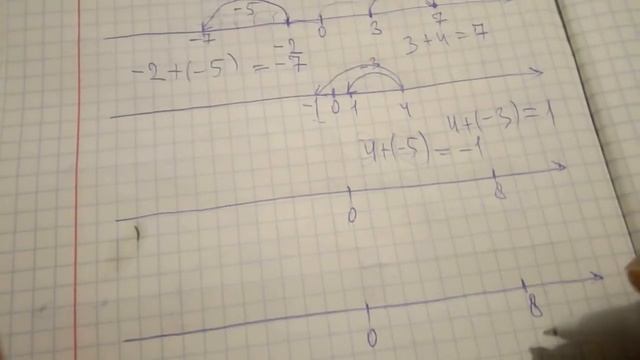 -5
-7 -2 0 3 7
-2+(-5) = -7
3+4=7
-3
-1 0 1 4
4+(-3)=1
4+(-5)=-1
0 8
0 8